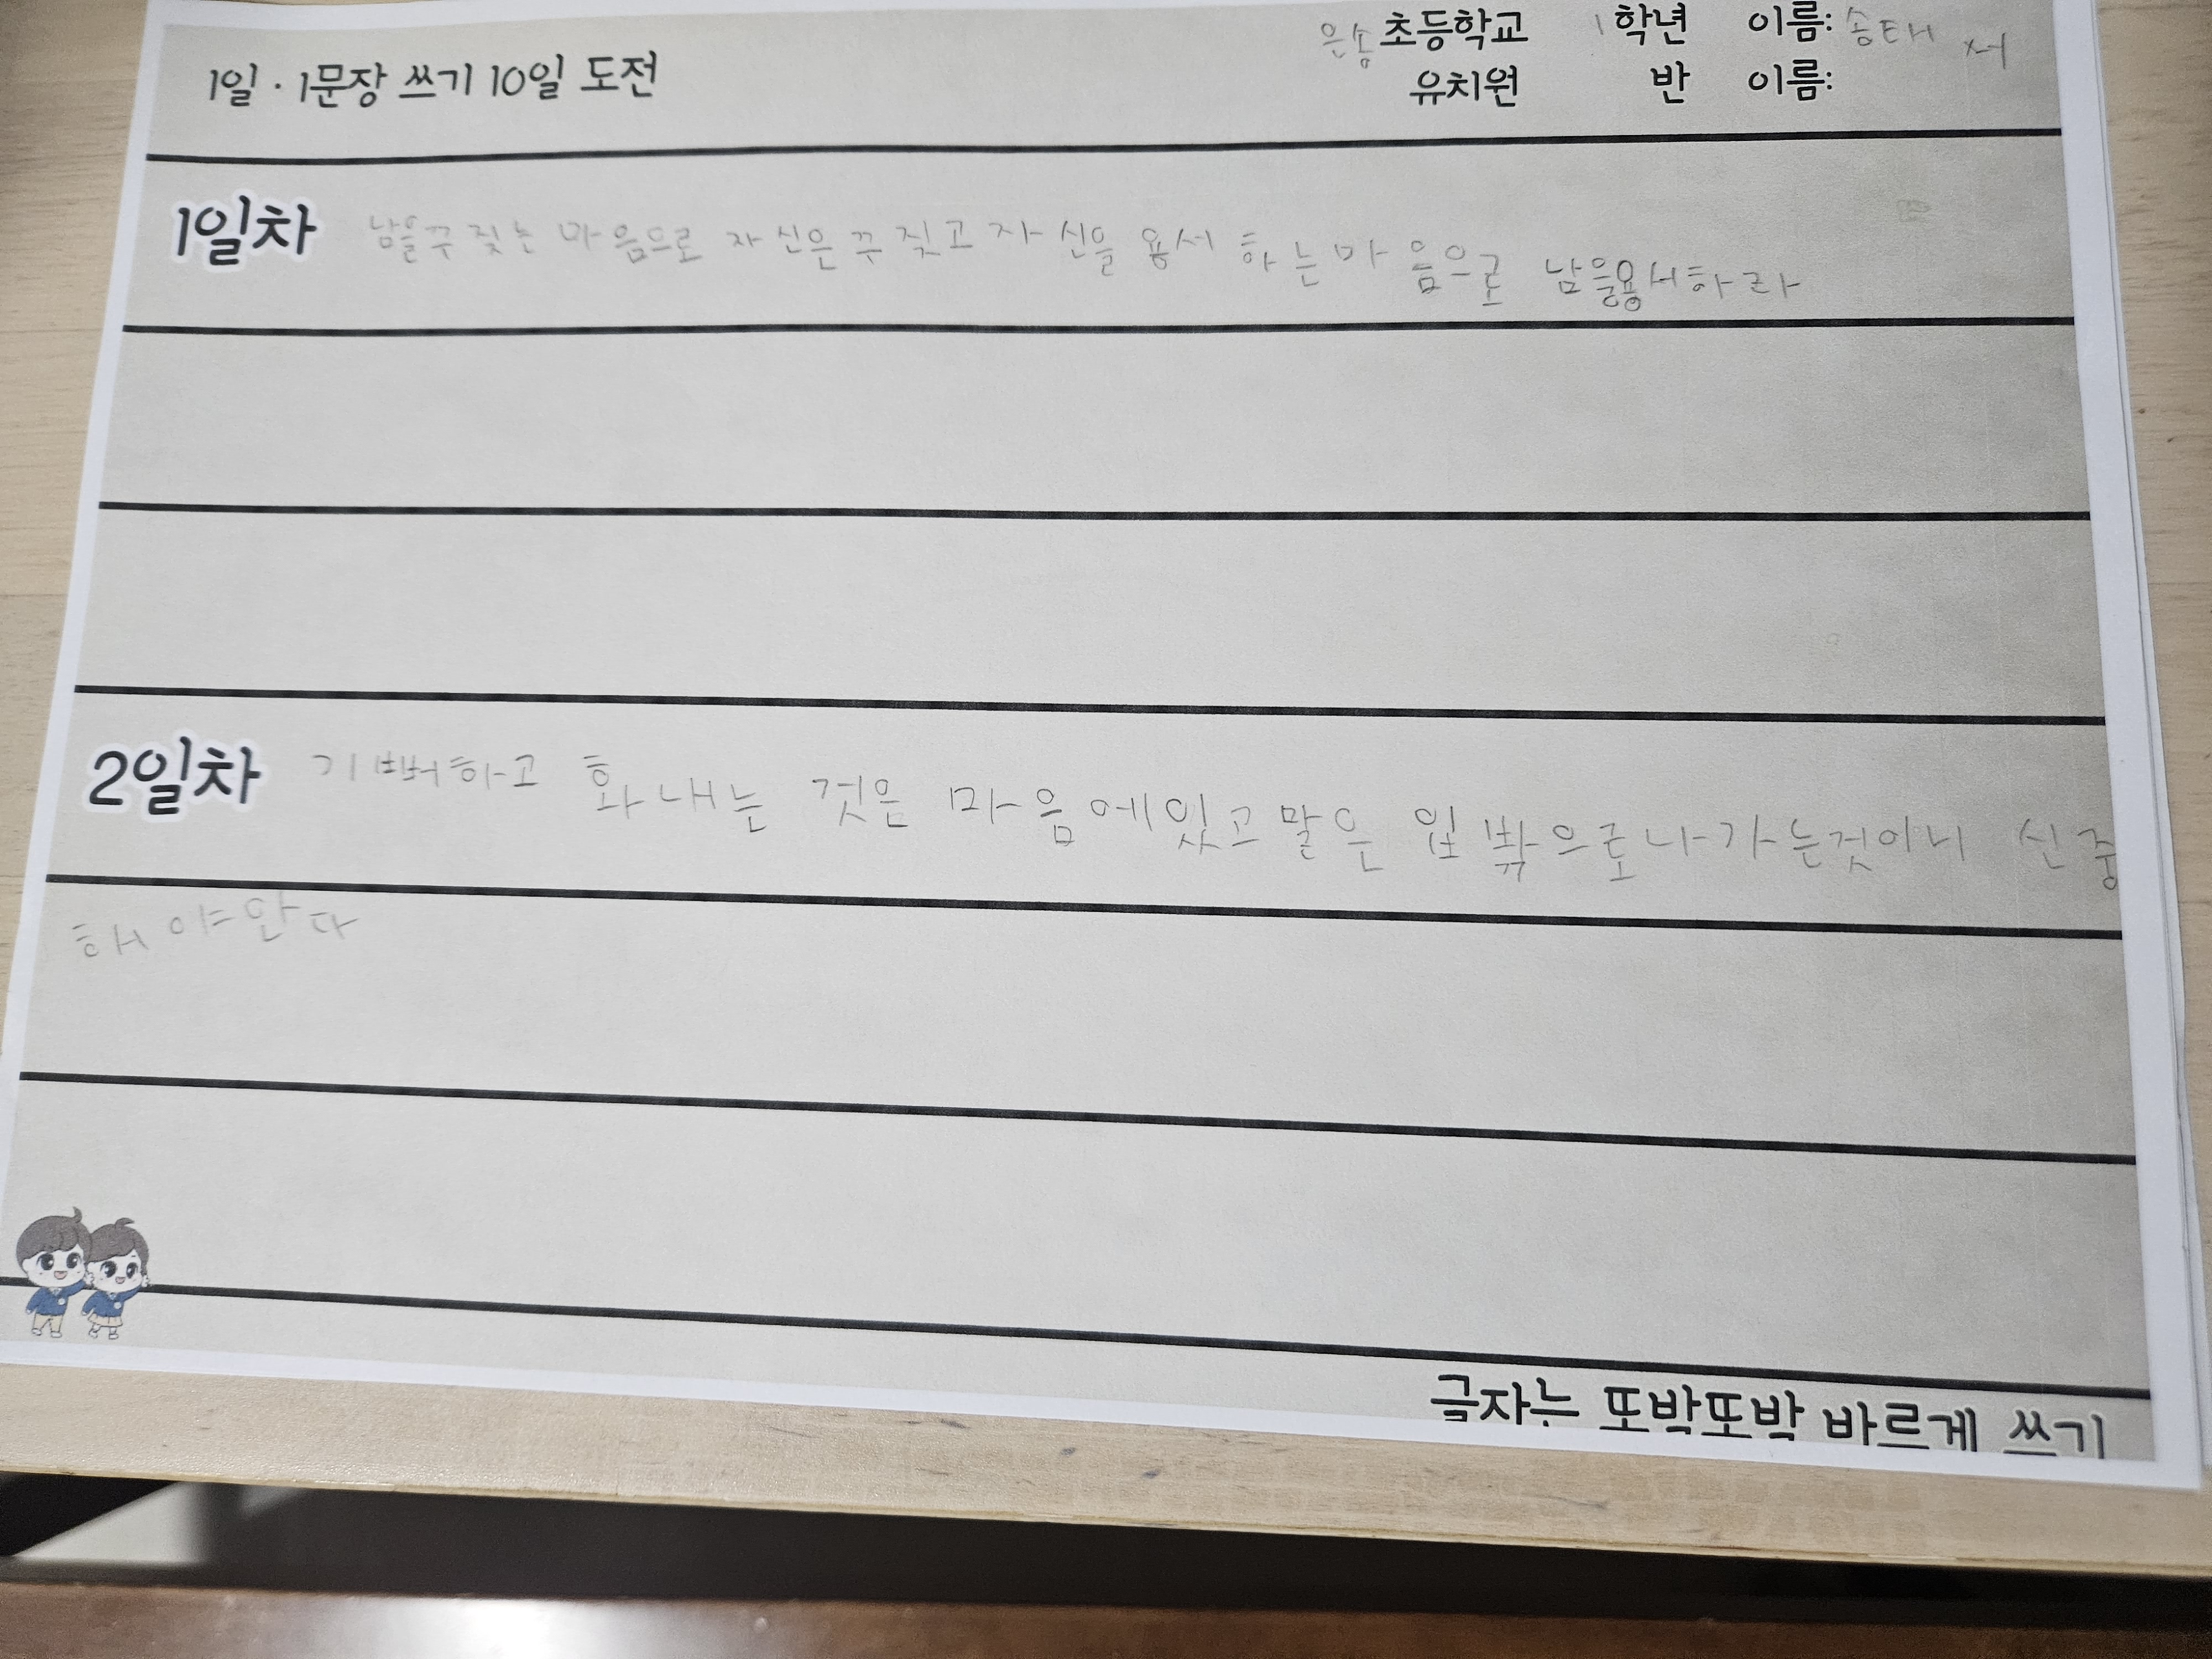 은송 초등학교 1학년 이름: 송태서
1일·1문장 쓰기 10일 도전
유치원 반 이름:
1일차 남을꾸짖는 마음으로 자신은꾸짖고 자신을 용서하는마음으로 남을용서하라
2일차 기뻐하고 화내는 것은 마음에있고말은 입밖으로나가는것이니 신중
해야한다
글자는 또박또박 바르게 쓰기